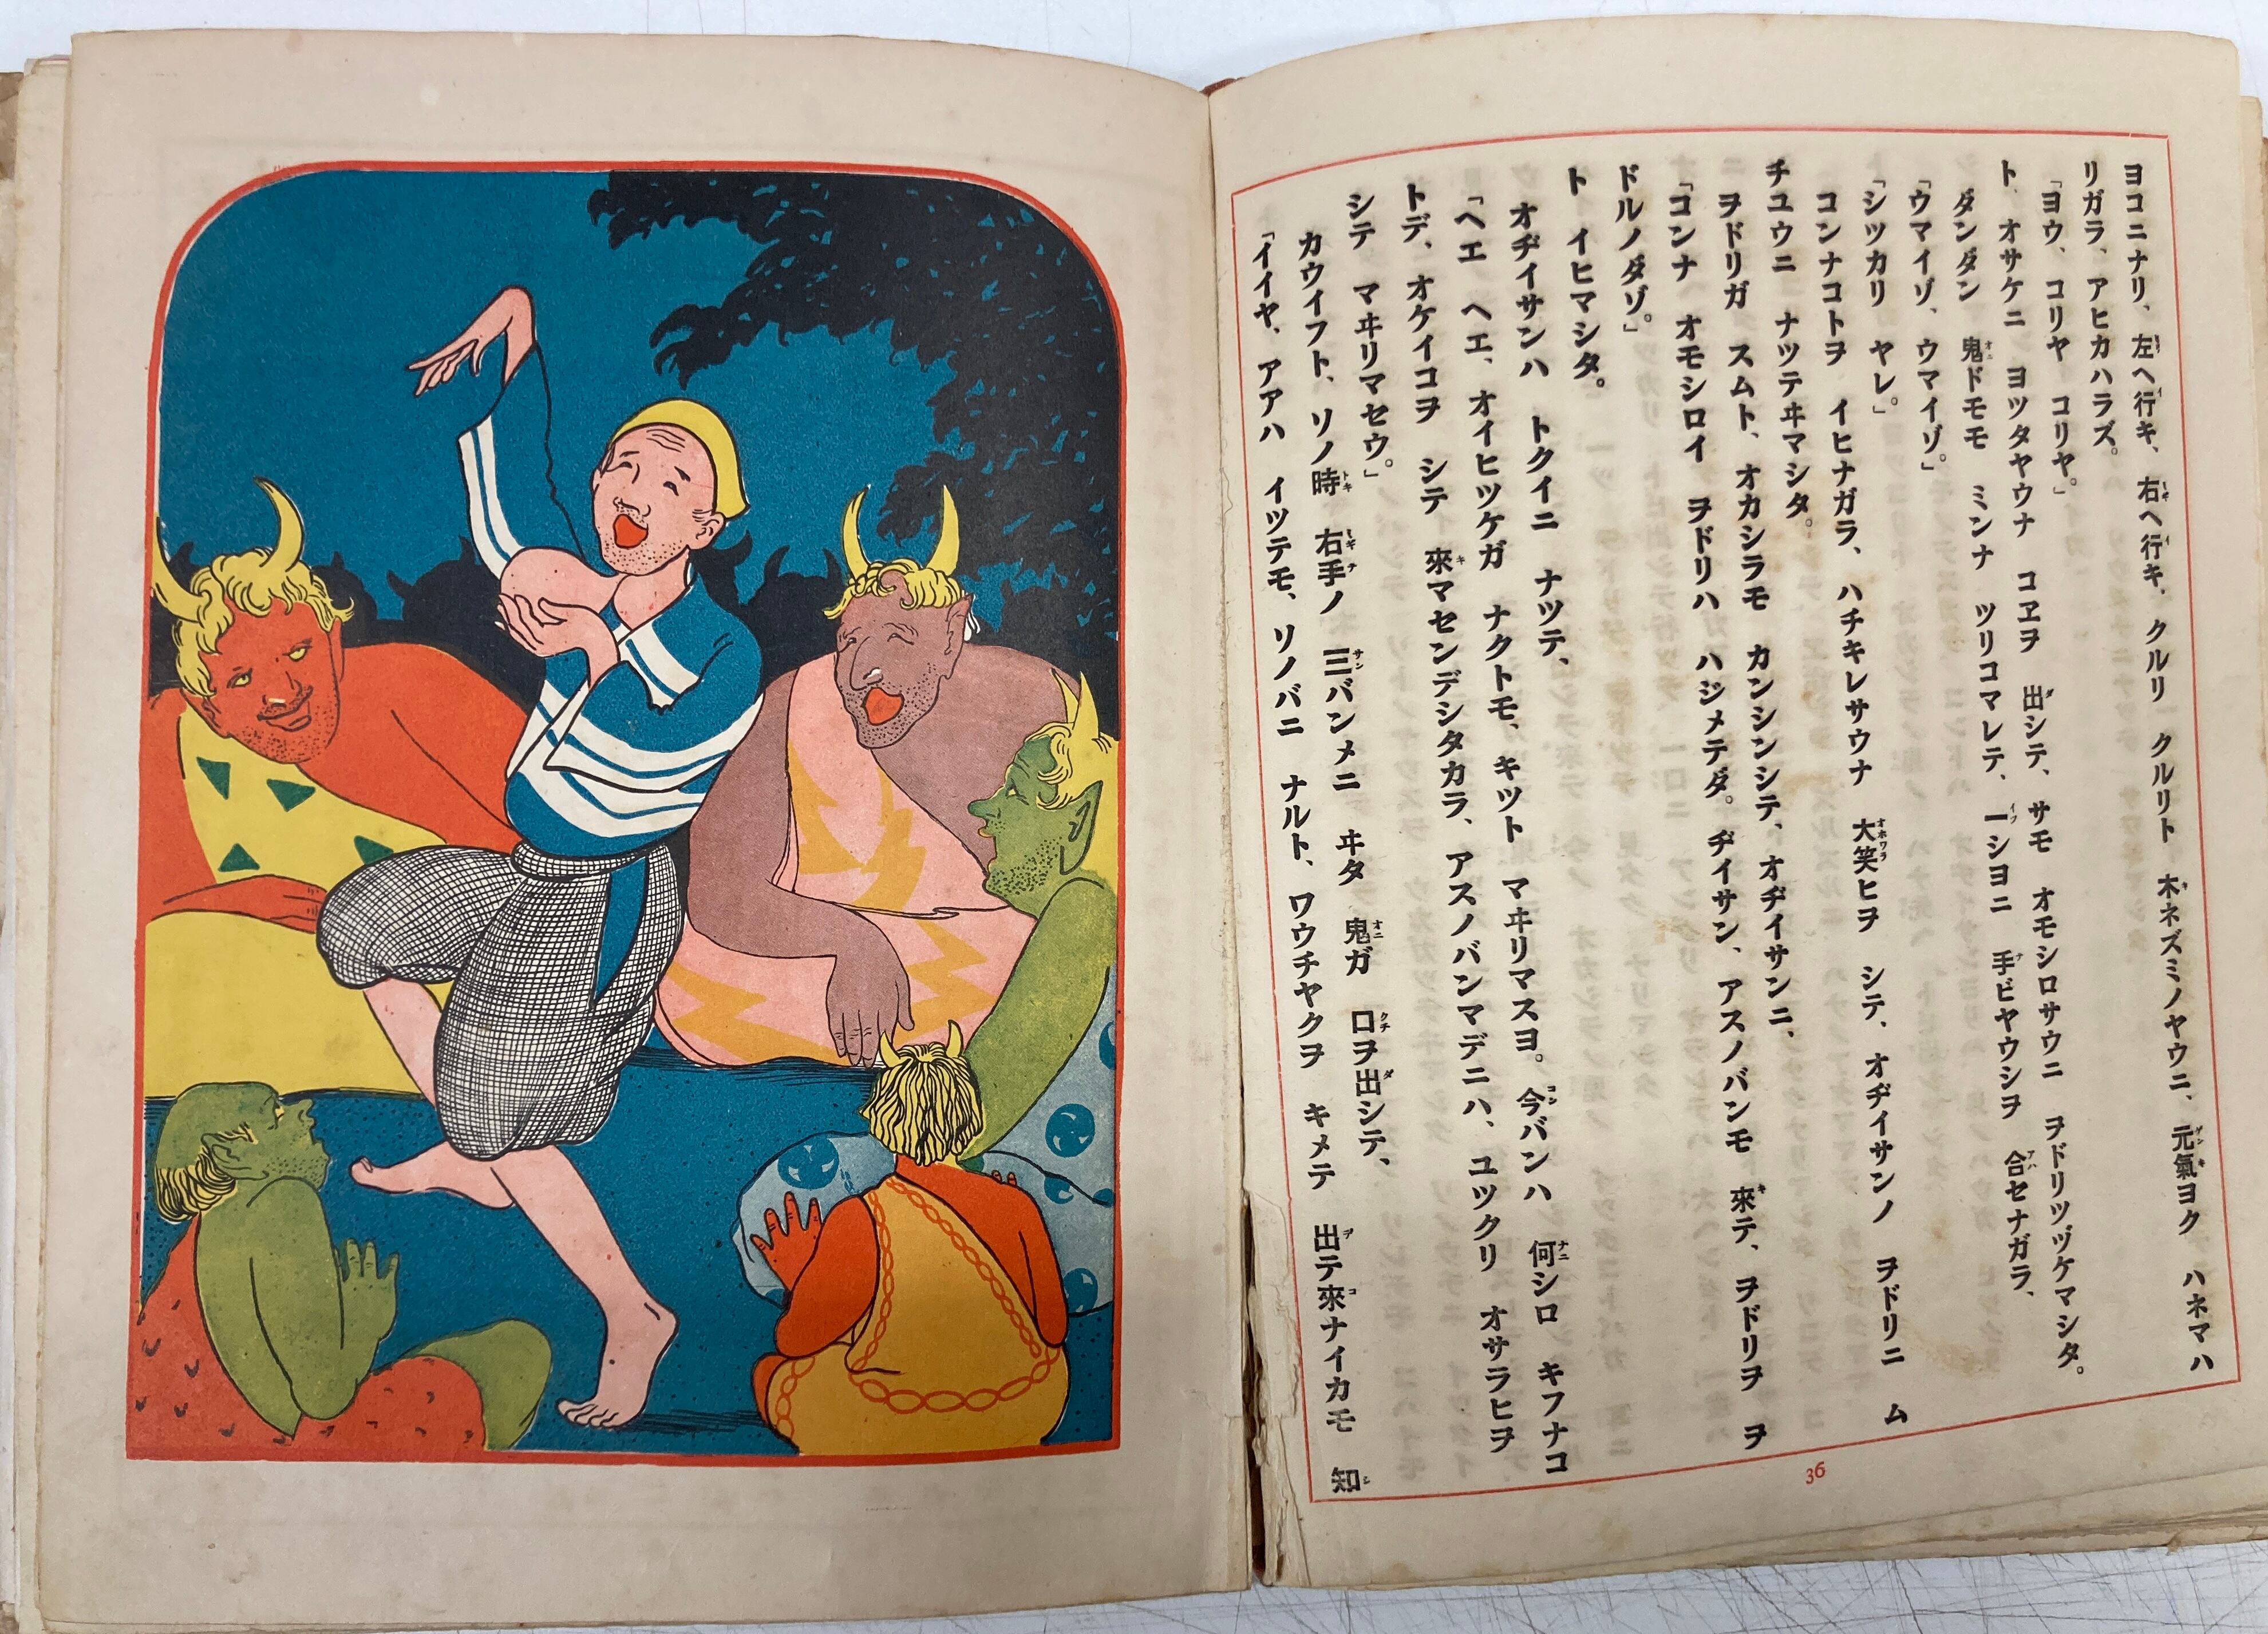 ヨコニナリ、左ヘ行キ、右ヘ行キ、クルリ クルリト 木ネズミノヤウニ、元氣ヨク ハネマハ
リガラ、アヒカハラズ。
「ヨウ、コリヤ コリヤ。」
ト、オサケニ ヨツタヤウナ コヱヲ 出シテ、サモ オモシロサウニ ヲドリツヅケマシタ。
ダンダン 鬼ドモモ ミンナ ツリコマレテ、一シヨニ 手ビヤウシヲ 合セナガラ、
「ウマイゾ、ウマイゾ。」
「シツカリ ヤレ。」
コンナコトヲ イヒナガラ、ハチキレサウナ 大笑ヒヲ シテ、オヂイサンノ ヲドリニ ム
チユウニ ナツテヰマシタ。
ヲドリガ スムト、オカシラモ カンシンシテ、オヂイサンニ、
「コンナ オモシロイ ヲドリハ ハジメテダ。ヂイサン、アスノバンモ 來テ、ヲドリヲ ヲ
ドルノダゾ。」
ト イヒマシタ。
オヂイサンハ トクイニ ナツテ、
「ヘエ ヘエ、オイヒツケガ ナクトモ、キツト マヰリマスヨ。今バンハ 何シロ キフナコ
トデ、オケイコヲ シテ 來マセンデシタカラ、アスノバンマデニハ、ユツクリ オサラヒヲ
シテ マヰリマセウ。」
カウイフト、ソノ時 右手ノ 三バンメニ ヰタ 鬼ガ 口ヲ出シテ、
「イイヤ、アアハ イツテモ、ソノバニ ナルト、ワウチヤクヲ キメテ 出テ來ナイカモ 知
36